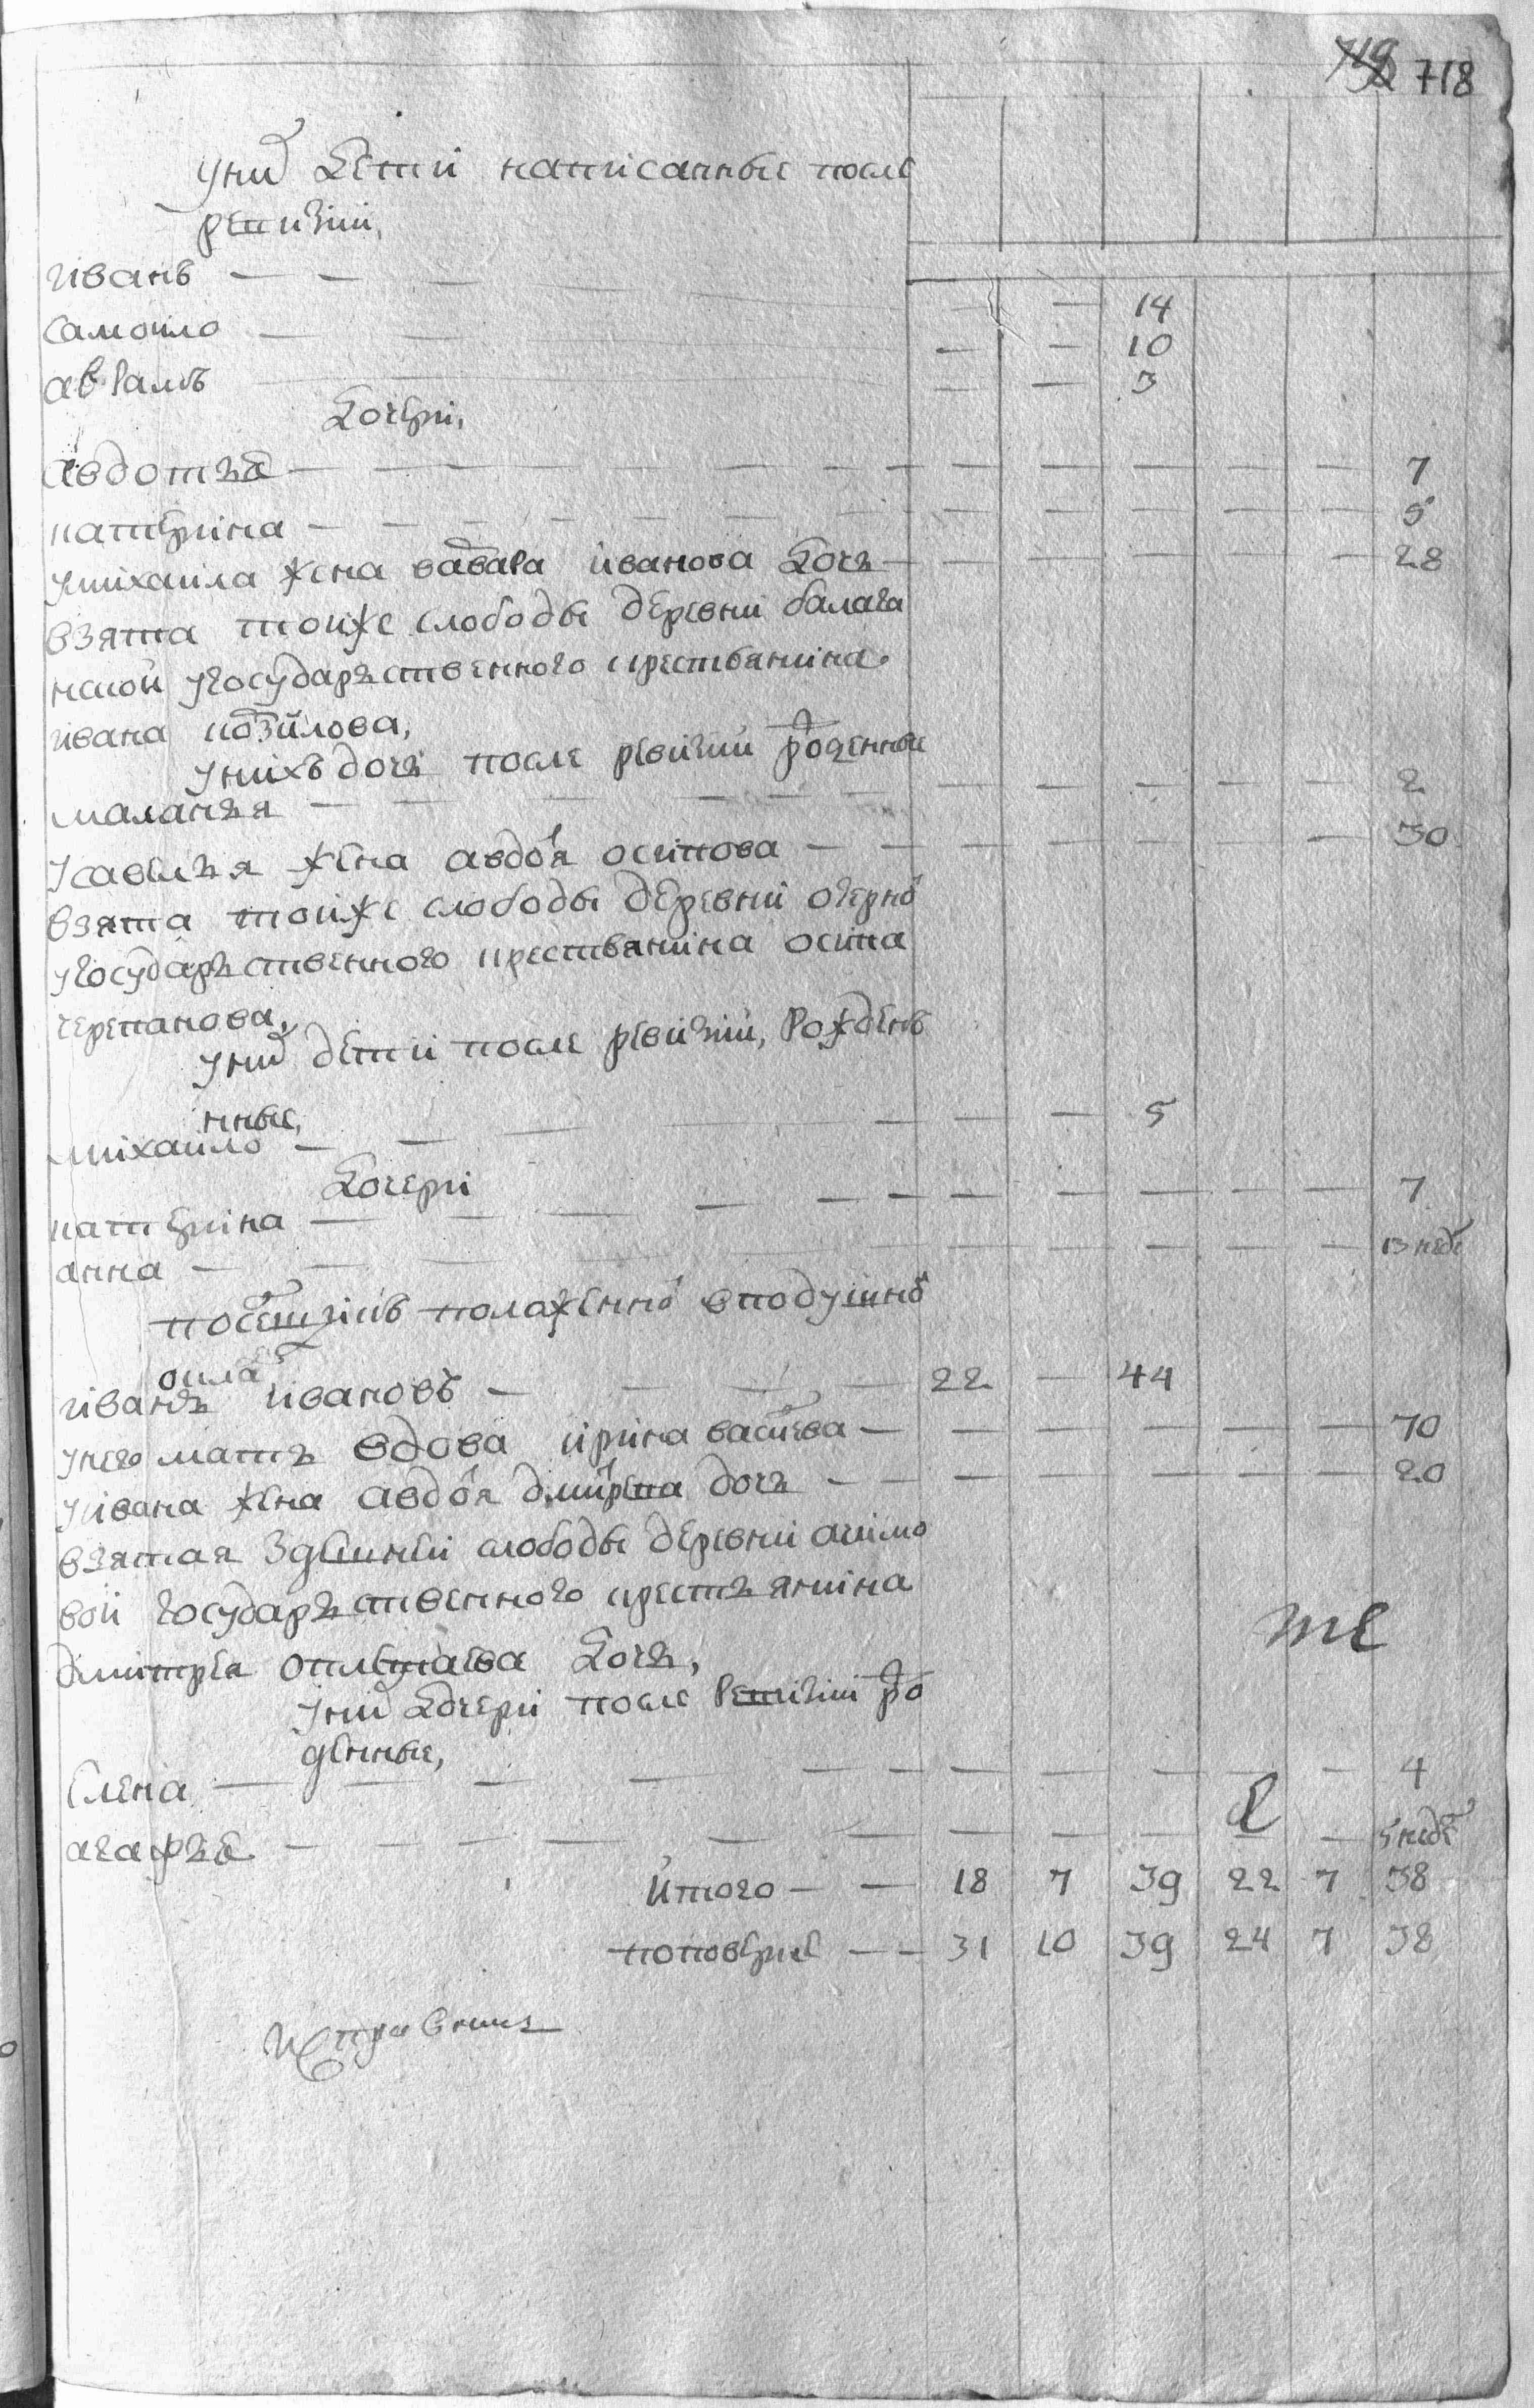 718
уних детеи написанные после
ревизии,
иванъ — — — — — 14
самоило — — — — 10
авраамъ — — 3
дочери,
авдотья — — — — — — — — — — — 7
катерина — — — — — — — — — — — 5
умихаила жена варвара иванова дочь — — — — — — 28
взята тоиже слободы деревни балага
нскои угосударственного крестьянина
ивана
унихъ дочь после ревизии рожденные
маланья — — — — — — — — — — — 2
усавелья жена авдотя осипова — — — — — — 30
взята тоиже слободы деревни
угосударственного крестьянина осипа
черепанова,
уних детеи после ревизии, рожден
нные,
михаило — — — — — 5
дочери
катерина — — — — — — — — — — 7
анна — — — — — — — — — 13 неде
положенно вподушно
окла
иванъ ивановъ — — — — 22 — 44
унего мать вдова ирина васильева — — — — — — 70
уивана жена авдотя дмитрева дочь — — — — — — 20
взятая здешнеи слободы деревни акимо
вои государственного крестьянина
дмитрея дочь,
уних дочери после ревизии ро
жденные,
елена — — — — — — — — — — 4
агафья — — — — — — — — — — 5 неде
итого — — 18 7 39 22 7 38
поповерке — — 31 10 39 24 7 38